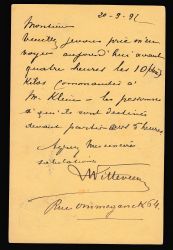 20-9-95
Monsieur
Veuillez je vous prie m'en
voyer aujourd'hui avant
quatre heures les 10
kilos commandés à
M. Klein - les personnes
à qui ils sont destinés
devant partir à 5 heures
Agréez mes sincères
salutations
Witteveen
Rue Ommeganck 64.